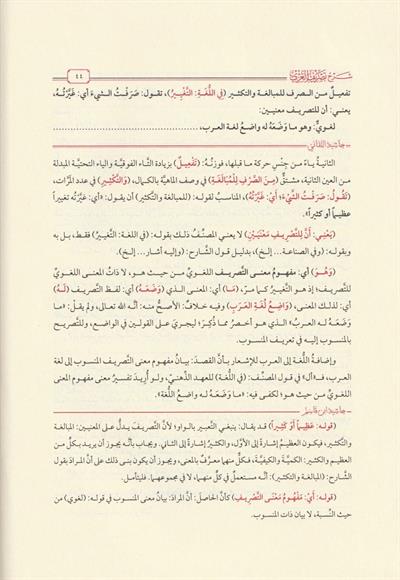 شرح تصريف العزي
٤٤
تفعيلٌ من الصرف للمبالغة والتكثير (فِي اللُّغَةِ: التَّغْيِيرُ)، تقول: صَرَفْتُ الشيءَ أي: غَيَّرْتُهُ،
يعني: أن للتصريف معنيين:
لغويٌّ: وهو ما وَضَعَهُ له واضعُ لغة العرب،
حاشية اللقاني
الثانية ياءً من جنس حركة ما قبلها، فوزنُهُ: (تَفْعِيلٌ) بزيادة التاء الفوقية والياء التحتية المبدلة
من العين الثانية، مشتقٌّ (مِنَ الصَّرْفِ لِلْمُبَالَغَةِ) في وصف الماهيَّة بالكمال، (وَالتَّكْثِيرِ) في عدد المرَّات،
(تَقُولُ: صَرَفْتُ الشَّيْءَ؛ أَيْ: غَيَّرْتُهُ)، المناسبُ لقوله: (للمبالغة والتكثير) أن يقول: «أي: غيَّرْتُه تغييراً
عظيماً أو كثيراً».
(يَعْنِي: أَنَّ لِلتَّصْرِيفِ مَعْنَيَيْنِ) لا يعني المصنِّفُ ذلك بقوله: (في اللغة: التَّغْيِيرُ) فقط، بل به
وبقوله: (وفي الصناعة... إلخ)، بدليل قول الشَّارح: (وإليه أشار... إلخ).
(وَهُوَ) أي: مفهومُ معنى التَّصريف اللغويِّ من حيث هو، لا ذاتُ المعنى اللغويِّ
للتَّصريف؛ إذ هو التَّغْييرُ كما مرَّ، (مَا) أي: المعنى الذي (وَضَعَهُ) أي: لفظَ التَّصريف (لَهُ)
أي: لذلك المعنى، (وَاضِعُ لُغَةِ العَرَبِ) وفيه خلافٌ: الأصحُّ منه: أنَّه الله تعالى، ولم يقُلْ: «ما
وَضَعَهُ له العربُ» الذي هو أخصرُ مما ذُكِرَ؛ ليجريَ على القولين في الواضع، وللتَّصريح
بالمنسوب إليه في تعريف المنسوب.
وإضافةُ اللُّغة إلى العرب للإشعار بأنَّ القصدَ: بيانُ مفهوم معنى التَّصريف المنسوب إلى لغة
العرب، فـ«أل» في قول المصنِّف: (في اللُّغَةِ) للعهد الذِّهنيِّ، ولو أُريدَ تفسيرُ معنى مفهوم المعنى
اللغويِّ من حيث هو؛ لكفى فيه: «ما وَضَعَهُ له واضعُ اللُّغَة».
حاشية ابن قاسم
(قوله: عَظِيماً أَوْ كَثِيراً) قد يقال: ينبغي التَّعبير بالواو؛ لأنَّ التَّصريف يدلُّ على المعنيين: المبالغة
والتَّكثير، فيكون العظيمُ إشارةً إلى الأوَّل، والكثيرُ إشارةً إلى الثاني. ويجاب بأنَّه يجوز أن يريد بكلٍّ من
العظيم والكثير: الكميَّةَ والكيفيَّةَ، فكلٌّ منهما معرَّفٌ بالمعنى، ويجوز أن يكون بنى ذلك على أنَّ المرادَ بقول
الشَّارح: (للمبالغة والتكثير): أنَّه مستعملٌ في كلٍّ منهما، لا في مجموعهما. فليتأمل.
(قوله: أَيْ: مَفْهُومُ مَعْنَى التَّصْرِيفِ) كأنَّ الحاصلَ: أنَّ المرادَ: بيانُ معنى المنسوب في قوله: (لغوي) من
حيث النِّسبة، لا بيان ذات المنسوب.